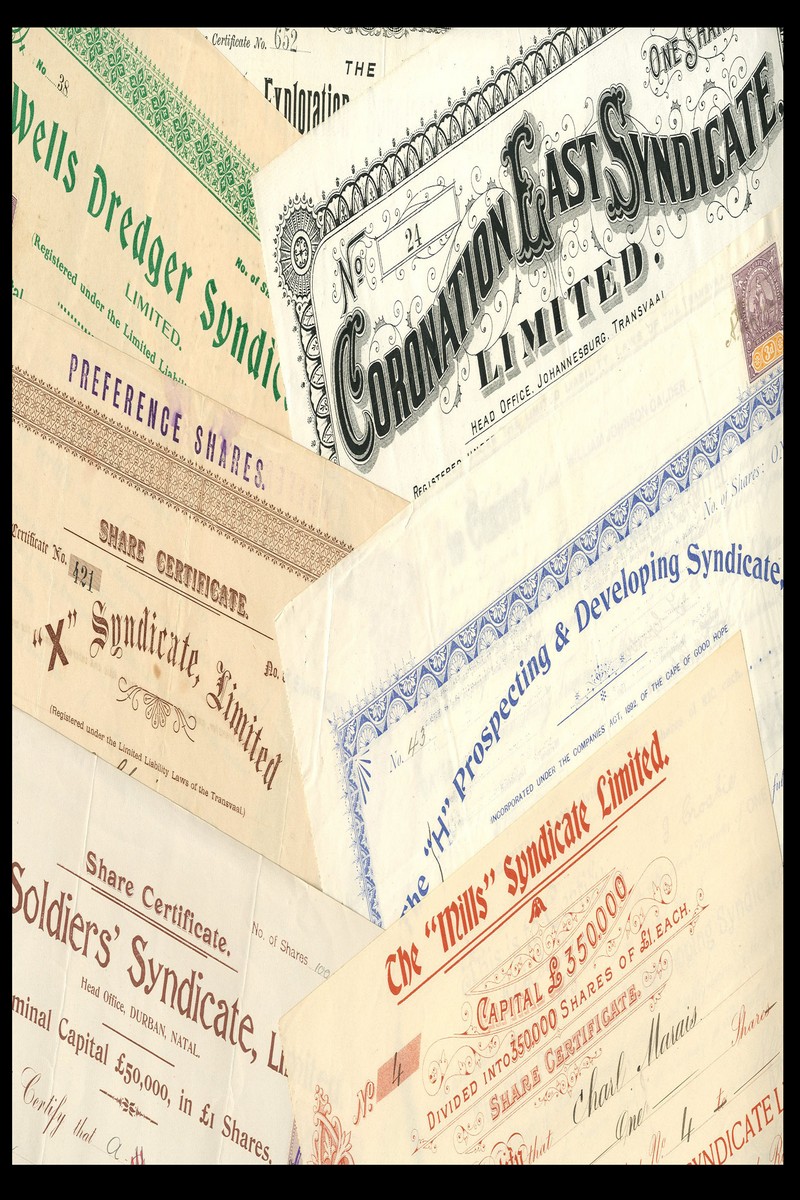 Certificate No. 652
THE
Exploration
No 38
Wells Dredger Syndic
No. of S
LIMITED.
(Registered under the Limited Liabil
ONE SHAR
No 21
CORONATION EAST SYNDICATE,
LIMITED.
HEAD OFFICE, JOHANNESBURG, TRANSVAAL
REGISTERED UNDER
PREFERENCE SHARES.
SHARE CERTIFICATE.
Certificate No. 421
"X" Syndicate, Limited
No.
(Registered under the Limited Liability Laws of the Transvaal.)
No. of Shares: ON
No. 43
the "H" Prospecting & Developing Syndicate,
INCORPORATED UNDER THE COMPANIES ACT, 1892, OF THE CAPE OF GOOD HOPE
Share Certificate.
No. of Shares 100
Soldiers' Syndicate, Li
Head Office, DURBAN, NATAL.
minal Capital £50,000, in £1 Shares,
Certify that a
The "Mills" Syndicate Limited.
CAPITAL £350,000
DIVIDED INTO 350,000 SHARES OF £1 EACH.
SHARE CERTIFICATE.
No 4
that Charl Marais
One Shares
No 4 to
SYNDICATE L